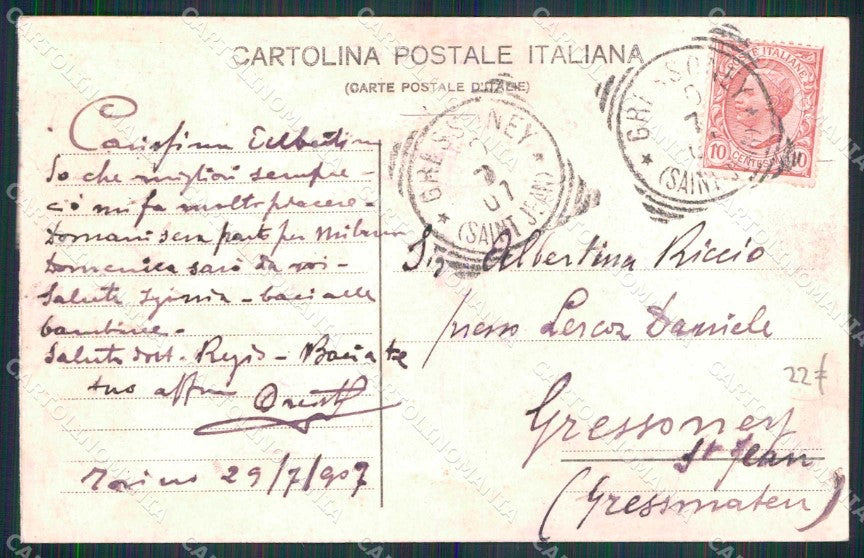 CARTOLINA POSTALE ITALIANA
(CARTE POSTALE D'ITALIE)
Carissima
So che migliori sempre -
ciò mi fa molto piacere -
Domani sera parto per Milano
Domenica sarò da voi -
Saluta - baci alle
bambine -
Saluta dott. Regis - Bacia te
tuo affmo
Torino 29/7/907
GRESSONEY
7
07
(SAINT JEAN)
GRESSONEY
7
(SAINT J
POSTE ITALIANE
10 CENTESIMI 10
Sig Albertina Riccio
presso Lescoz Daniele
Gressoney
St Jean
(Gressmaten)
22f
CARTOLINOMANIA